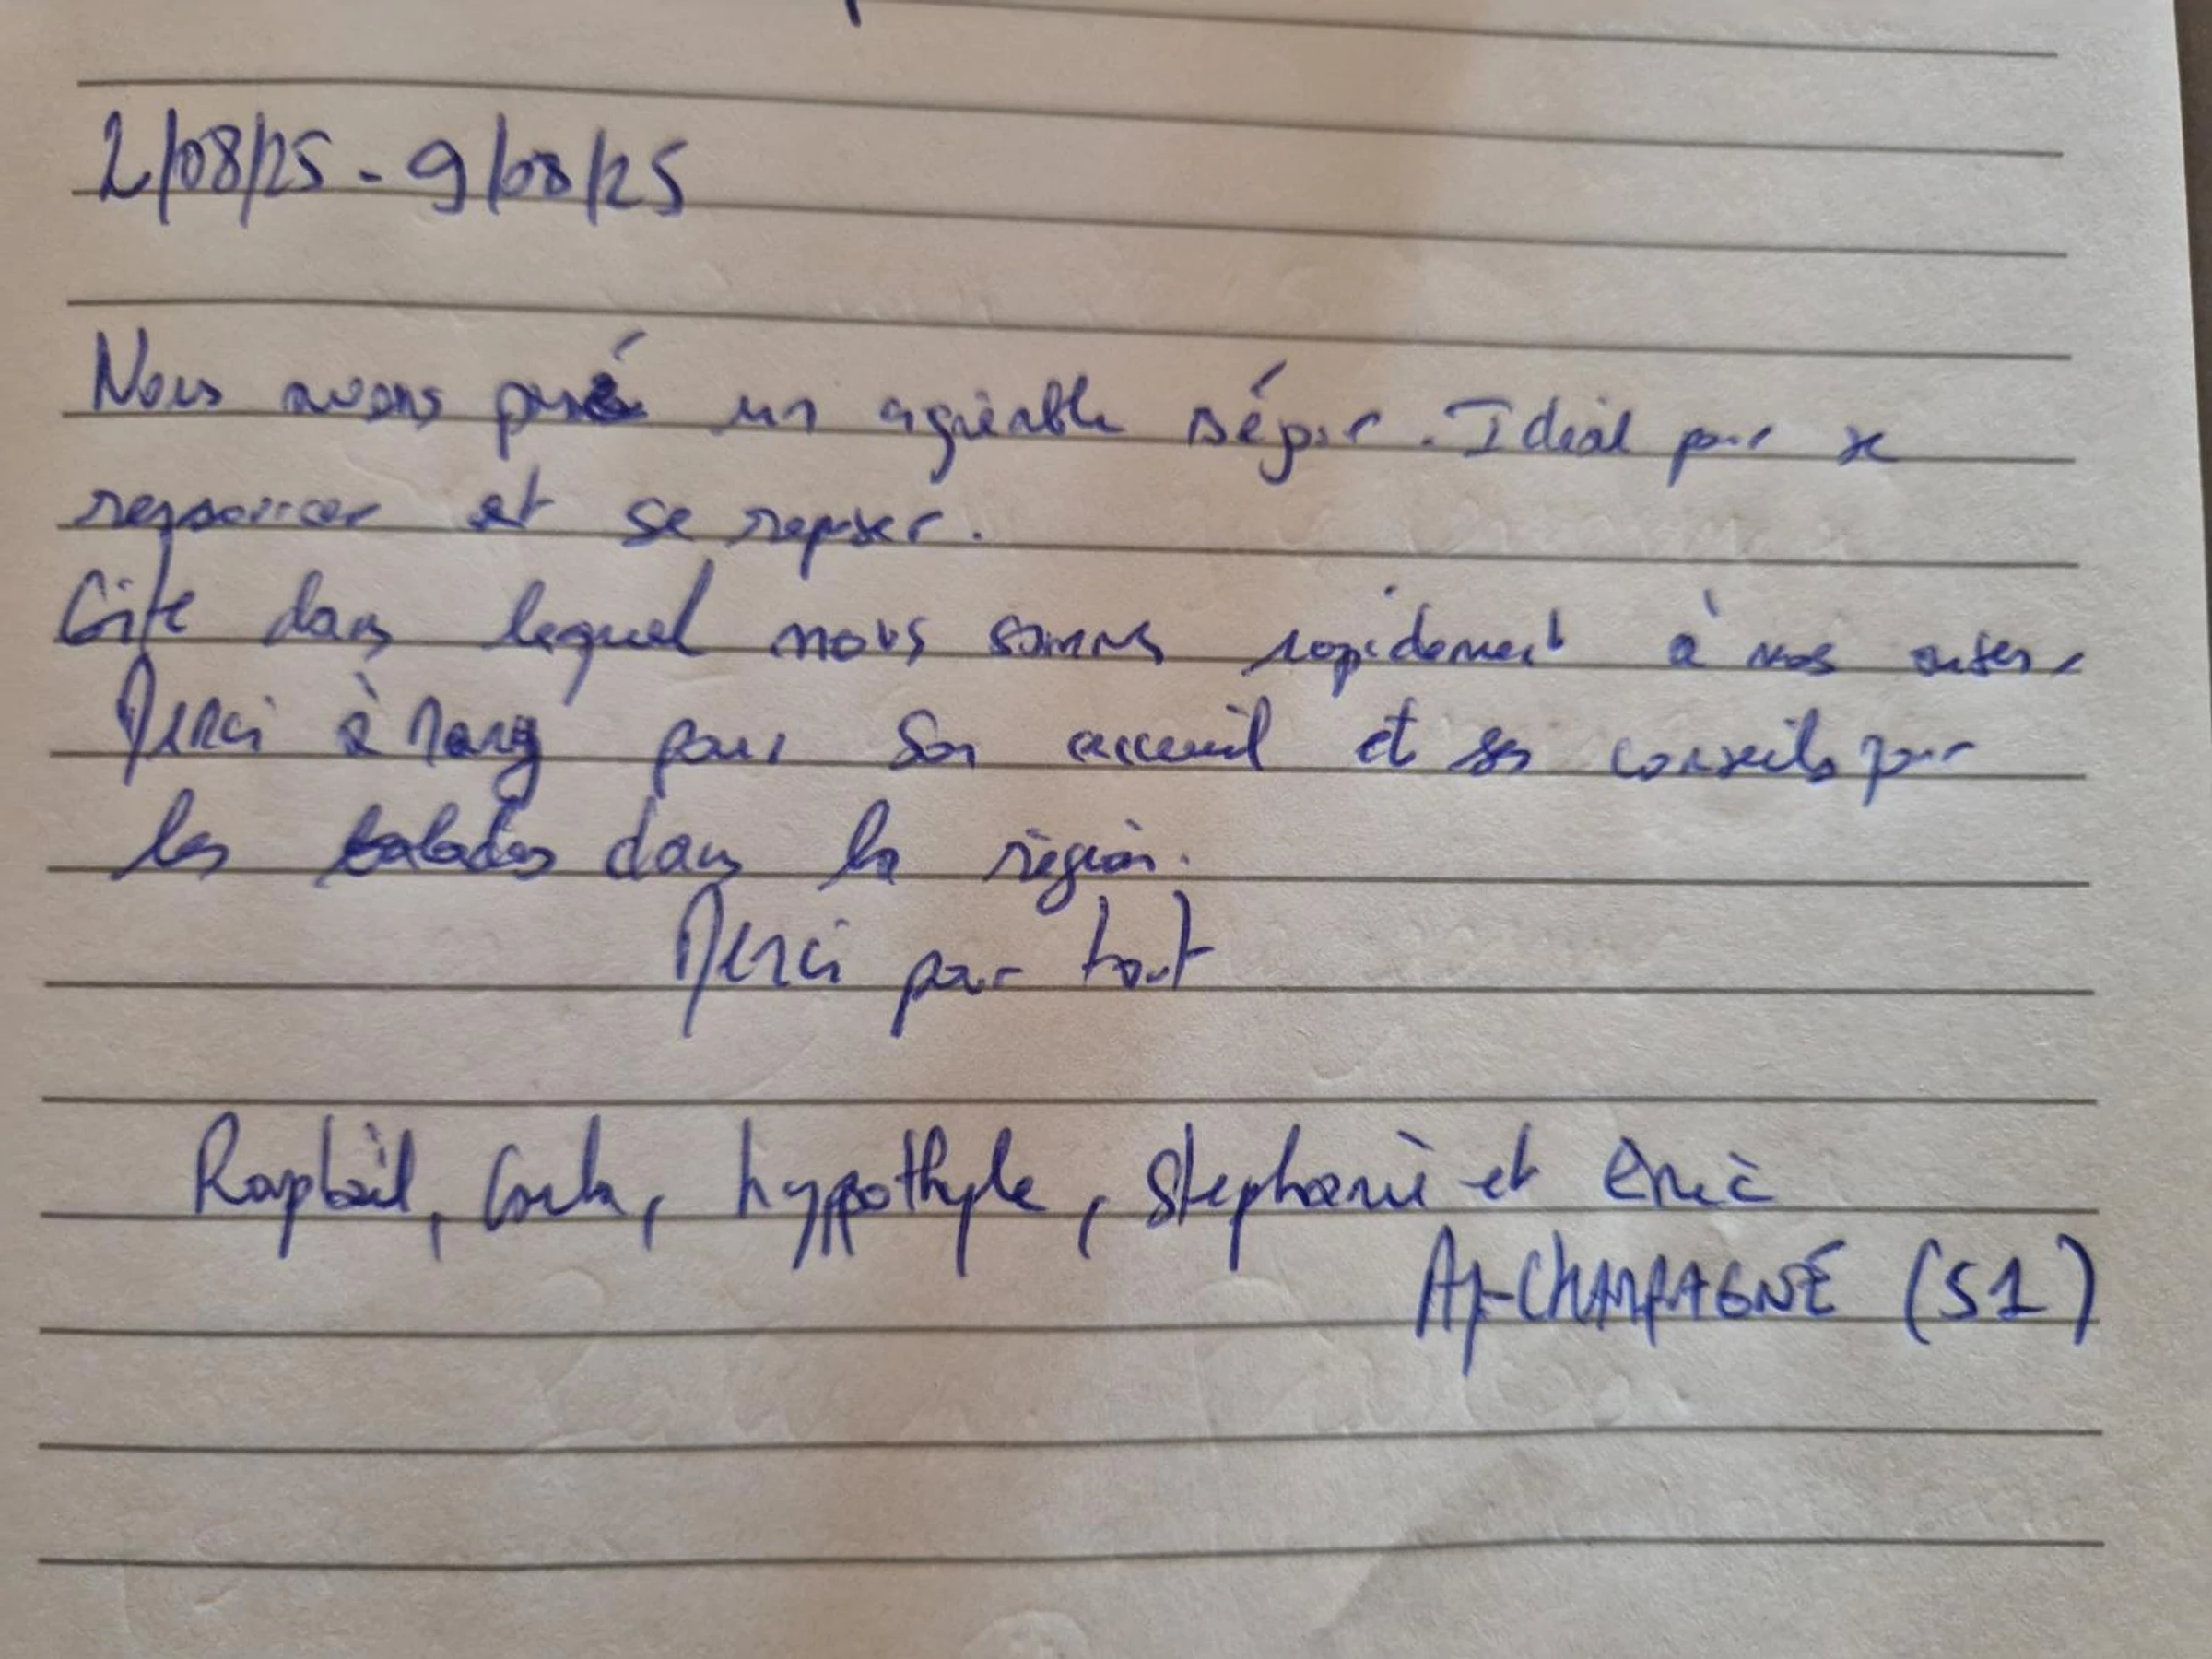 2/08/25 - 9/08/25
Nous avons passé un agréable séjour. Idéal pour se
ressourcer et se reposer.
Gîte dans lequel nous sommes rapidement à nos aises.
Merci à Mary pour son acceuil et ses conseils pour
les balades dans la région.
Merci pour tout
Raphaël, Carla, hyppothyle, Stephanie et eric
AY-CHAMPAGNE (51)